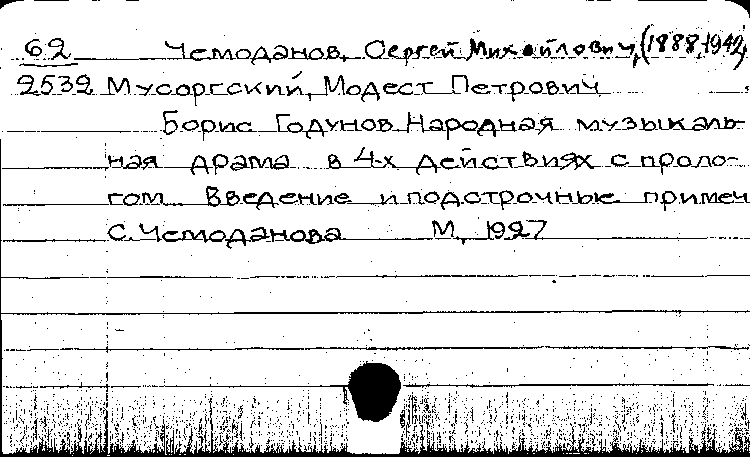 62 Чемоданов, Сергей Михайлович, (1888-1942)
2532 Мусоргский, Модест Петрович
Борис Годунов. Народная музыкаль-
ная драма в 4-х действиях с проло-
гом. Введение и подстрочные примеч
С. Чемоданова М., 1927